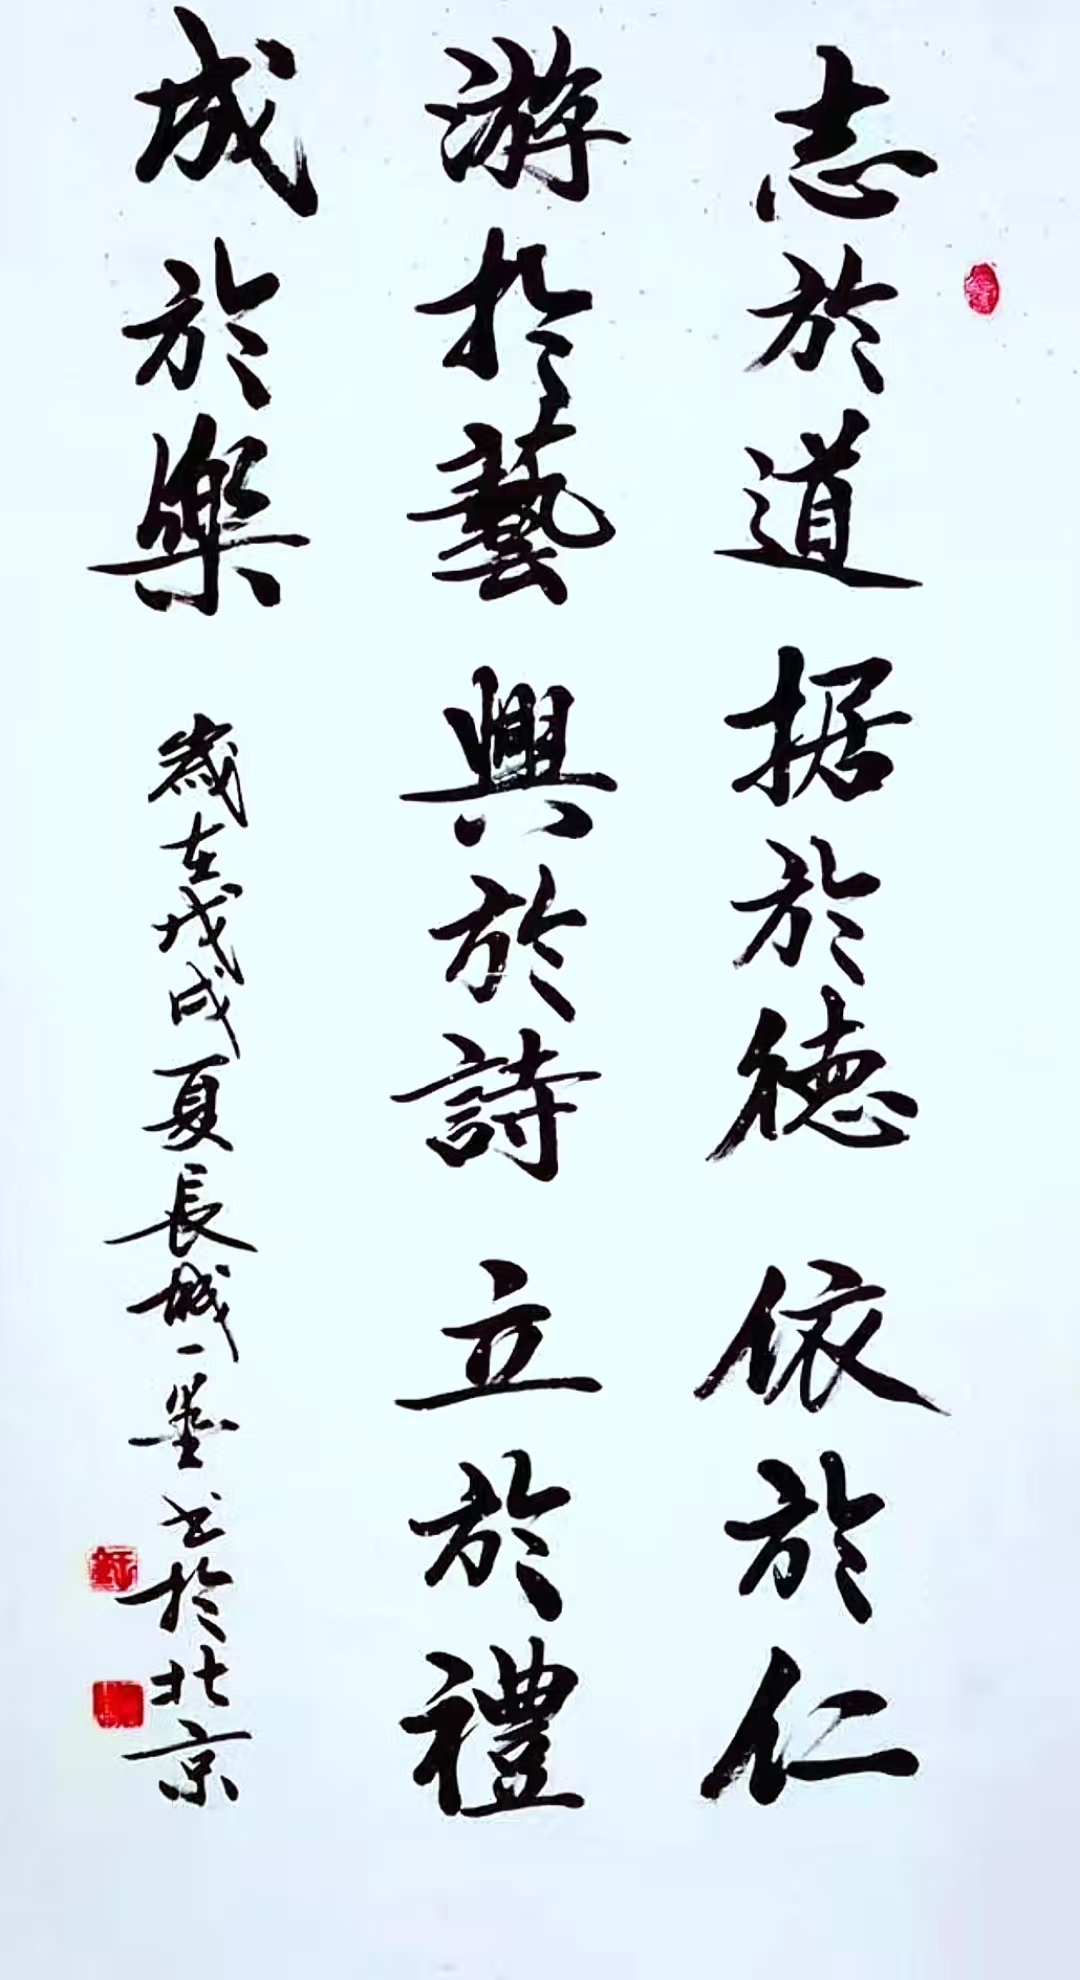 志於道据於德依於仁
游於藝興於詩立於禮
成於樂
歲在戊戌夏長城一墨书於北京